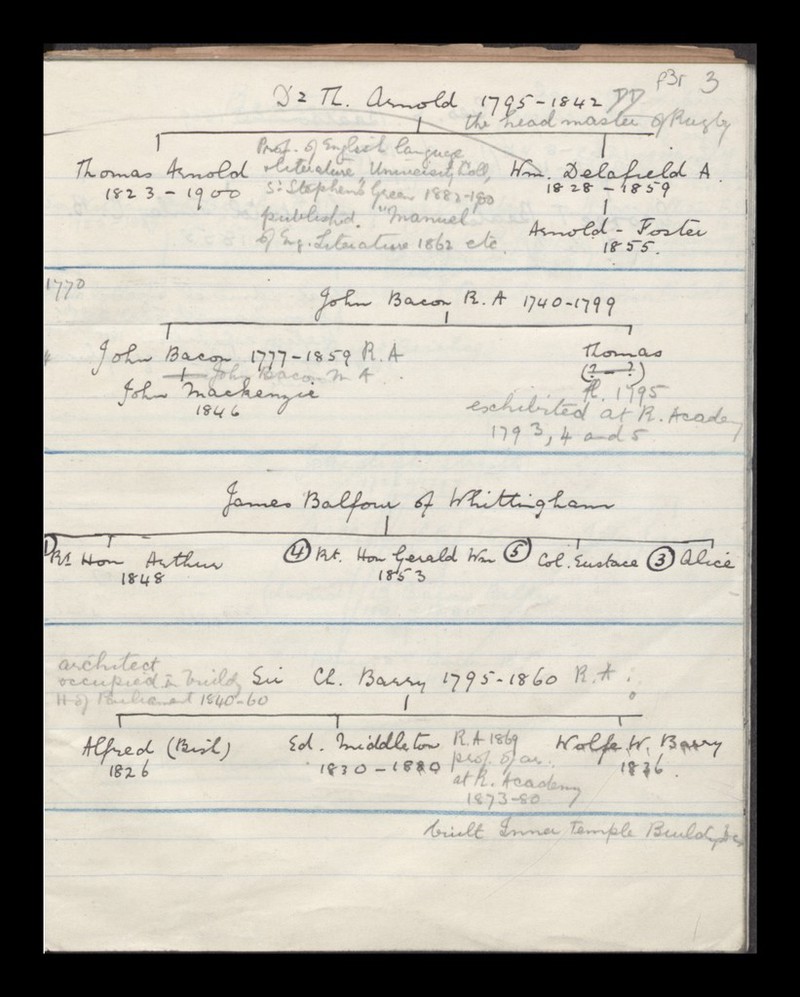 p3r 3
Dr Th. Arnold 1795-1842 DD
the head master of Rugby
Thomas Arnold
1823-1900
Prof. of English language
& literature, University Coll,
St Stephen's Green 1882-
published. "Manuel
of Eng. Literature 1862 etc.
Wm. Delafield A.
1828-1859
Arnold-Foster
1855.
1770
John Bacon R.A 1740-1799
John Bacon 1777-1859 R.A
John Bacon
John Mackenzie
1846
Thomas
(?-?)
fl. 1795
exhibited at R. Academy
1793, 4 and 5
James Balfour of Whittingham
① Rt Hon Arthur
1848
④ Rt. Hon Gerald Wm
1853
⑤ Col. Eustace
③ Alice
architect
occupied in build
H of Parliament 1840-60
Sir Ch. Barry 1795-1860 R.A.
Alfred (Bish)
1826
Ed. Middleton
1830-1880
R.A 1869
prof. of ar.
at R. Academy
1873-80
Wolfe W. Barry
1836.
built Inner temple Buildings